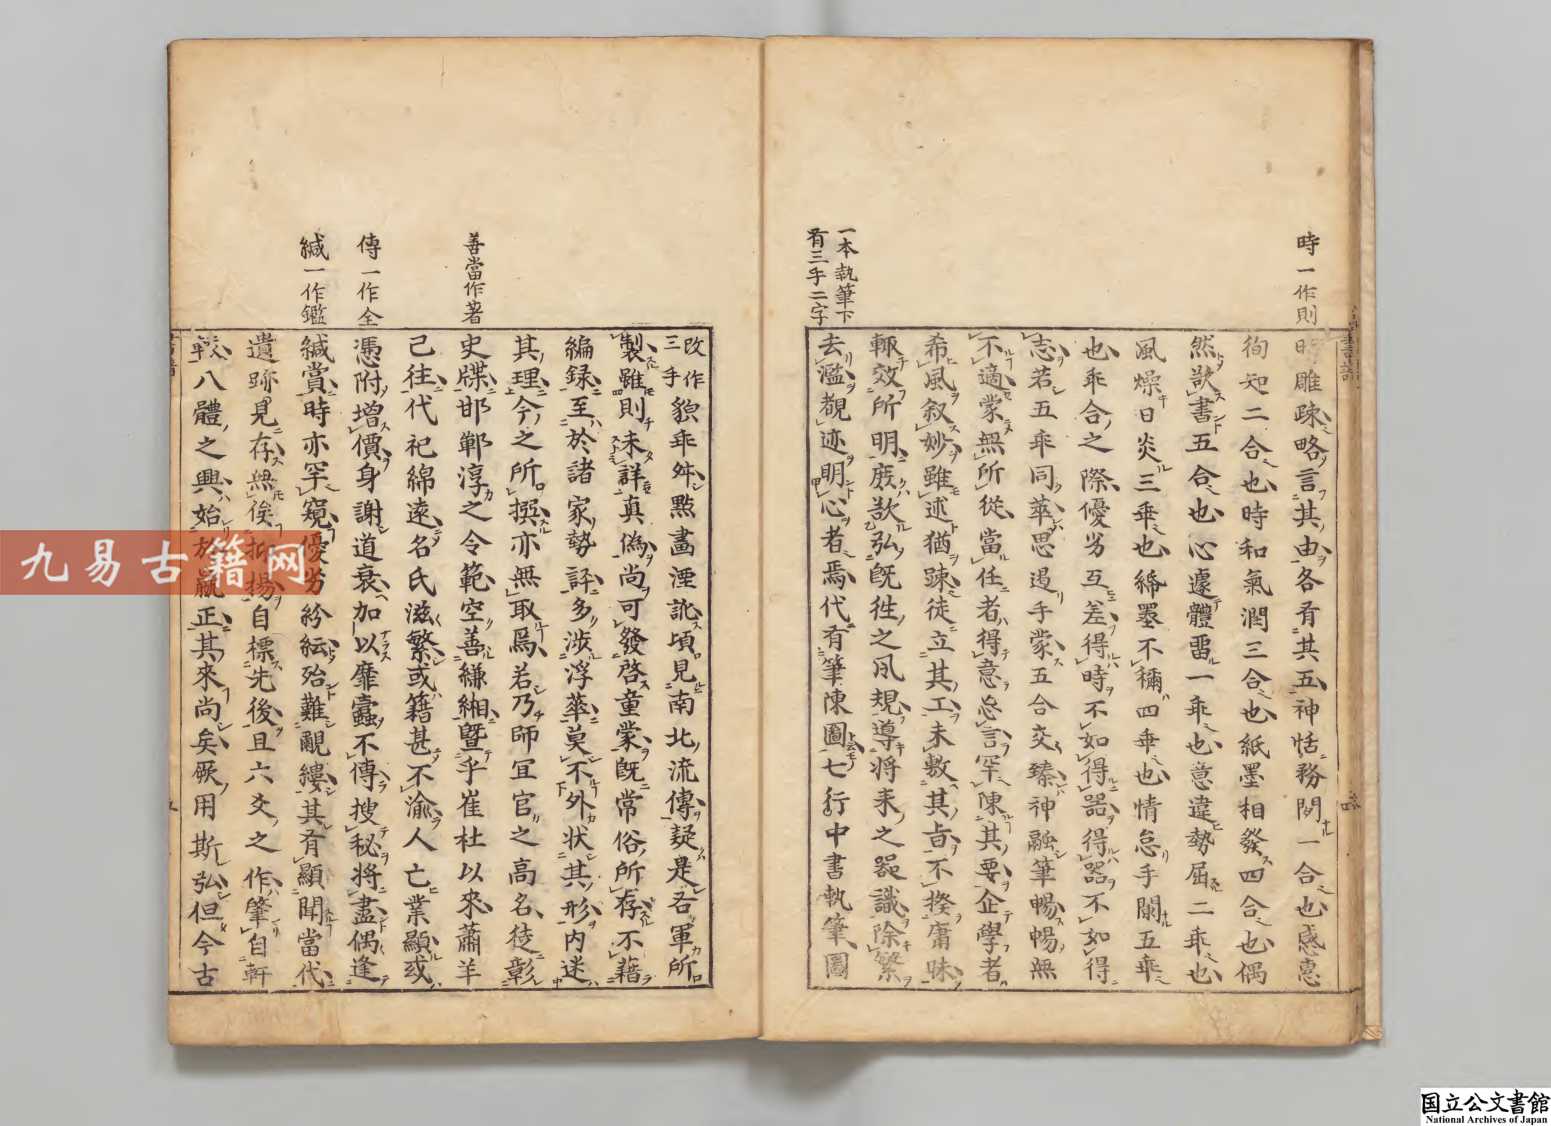 時一作則
時雕疎略言其由各有其五神恬務閑一合也感惠
徇知二合也時和氣潤三合也紙墨相發四合也偶
然欲書五合也心遽體留一乖也意違勢屈二乖也
風燥日炎三乖也紙墨不稱四乖也情怠手闌五乖
也乖合之際優劣互差得時不如得器得器不如得
志若五乖同萃思遏手蒙五合交臻神融筆暢暢無
不適蒙無所從當任者得意忘言罕陳其要企學者
希風叙妙雖述猶踈徒立其工未敷其旨不揆庸昧
輙效所明庶欲弘既徃之風規導将来之器識除繁
一本執筆下
有三手二字
去濫覩迹明心者焉代有筆陳圖七行中書執筆圖
改作
三手
貌乖舛點畫湮訛頃見南北流傳疑是右軍所
製雖則未詳真偽尚可發啓童蒙既常俗所存不藉
編録至於諸家勢評多渉浮華莫不外状其形内迷
其理今之所撰亦無取焉若乃師冝官之高名徒彰
善當作著
史牒邯鄲淳之令範空善縑緗曁乎崔杜以來蕭羊
己往代祀綿遠名氏滋繁或籍甚不渝人亡業顯或
傳一作全
憑附增價身謝道衰加以靡蠹不傳搜秘將盡偶逢
緘一作鑑
緘賞時亦罕窺優劣紛紜殆難覼縷其有顯聞當代
遺跡見存無俟抑揚自標先後且六爻之作肇自軒
轅八體之興始於嬴正其來尚矣厥用斯弘但今古
九易古籍网
国立公文書館
National Archives of Japan